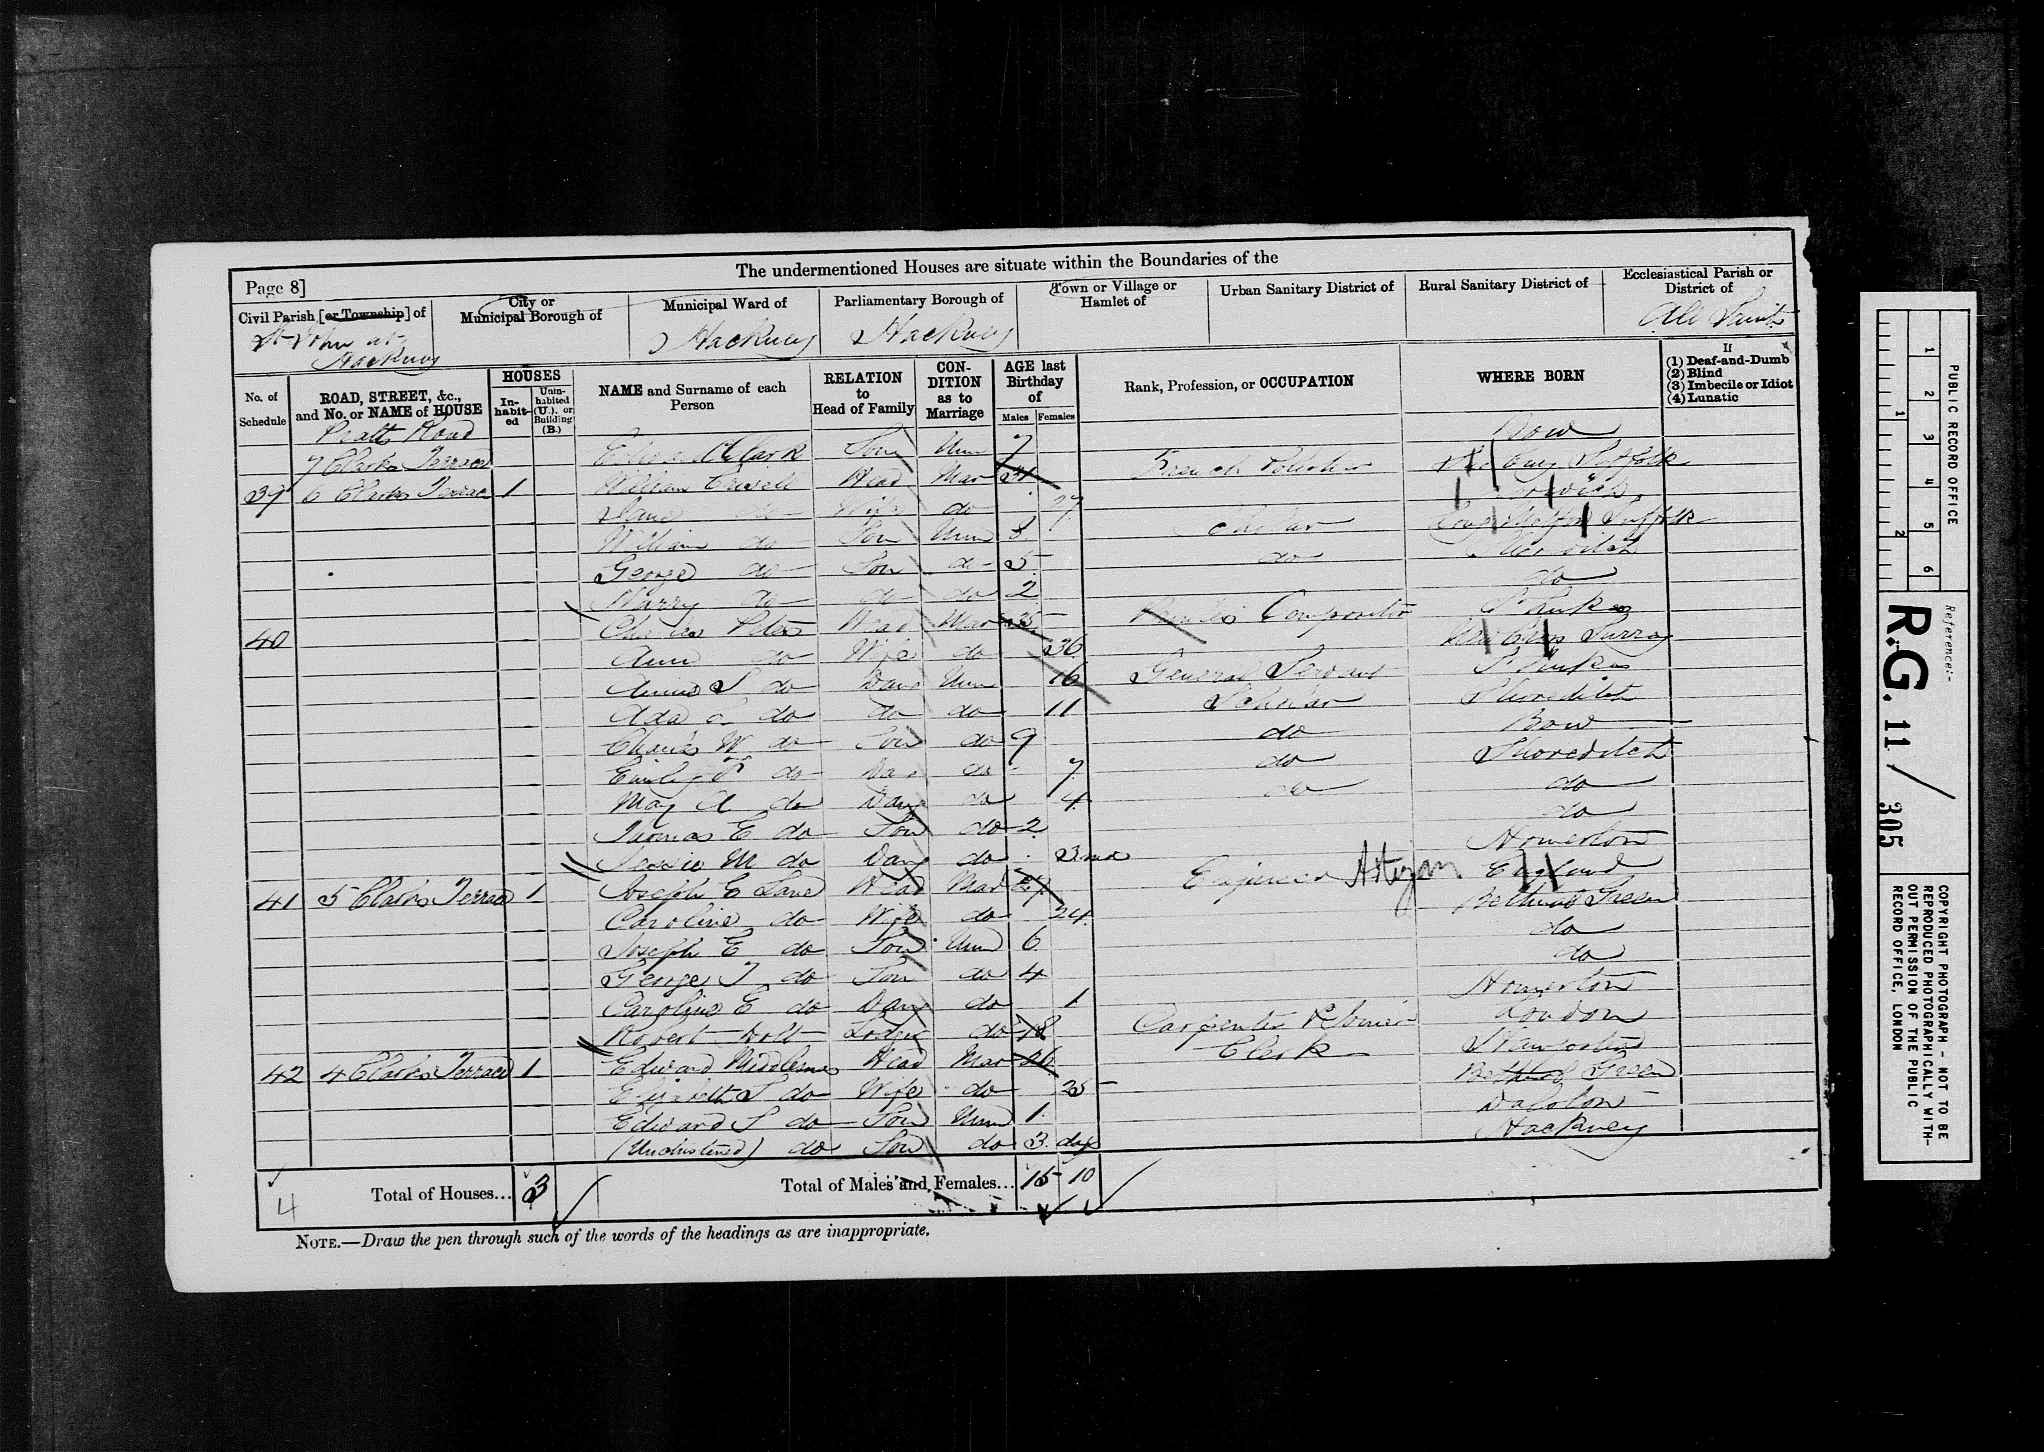 The undermentioned Houses are situate within the Boundaries of the
Page 8]
Civil Parish [or Township] of
City or Municipal Borough of
Municipal Ward of
Parliamentary Borough of
Town or Village or Hamlet of
Urban Sanitary District of
Rural Sanitary District of
Ecclesiastical Parish or District of
St John at Hackney
Hackney
Hackney
All Saints
No. of Schedule
ROAD, STREET, &c., and No. or NAME of HOUSE
HOUSES
In-habit-ed
Unin-habited (U.), or Building (B.)
NAME and Surname of each Person
RELATION to Head of Family
CON-DITION as to Marriage
AGE last Birthday of
Males
Females
Rank, Profession, or OCCUPATION
WHERE BORN
If
(1) Deaf-and-Dumb
(2) Blind
(3) Imbecile or Idiot
(4) Lunatic
Road
7 Clarks Terrace Clark Son Unm 7 Bow
39 6 Clarks Terrace 1 William Head Mar 31 French Polisher Suffolk
do Wife do 27
William do Son Unm 8 Scholar Long Melford Suffolk
George do Son do 5 do Shoreditch
Harry do do do 2 do
40 Charles Peters Head Mar Compositor St Lukes
Ann do Wife do 36 Surrey
Annie S do Daur Unm 16 General Servant St Lukes
Ada L do do do 11 Scholar Shoreditch
Charles W do Son do 9 do Bow
Emily do Daur do 7 do Shoreditch
May A do Daur do 4 do do
Thomas E do Son do 2 do
Jessie M do Daur do 23 Homerton
41 5 Clarks Terrace 1 Joseph E Lane Head Mar Engineer Artizan England
Caroline do Wife do 24 Bethnal Green
Joseph E do Son Unm 6 do
George J do Son do 4 do
Caroline E do Daur do 1 Homerton
Robert Holt Lodger do 18 Carpenter & Joiner London
42 4 Clarks Terrace 1 Edward Middlemas Head Mar 26 Clerk
Elizabeth S do Wife do 25 Bethnal Green
Edward S do Son Unm 1 Dalston
(Unchristened) do Son do 3 days Hackney
4
Total of Houses... 3
Total of Males and Females... 15 10
NOTE.—Draw the pen through such of the words of the headings as are inappropriate.
PUBLIC RECORD OFFICE
1 2 3 4 5 6
1 2
Reference:-
R.G. 11 / 305
COPYRIGHT PHOTOGRAPH - NOT TO BE
REPRODUCED PHOTOGRAPHICALLY WITH-
OUT PERMISSION OF THE PUBLIC
RECORD OFFICE, LONDON